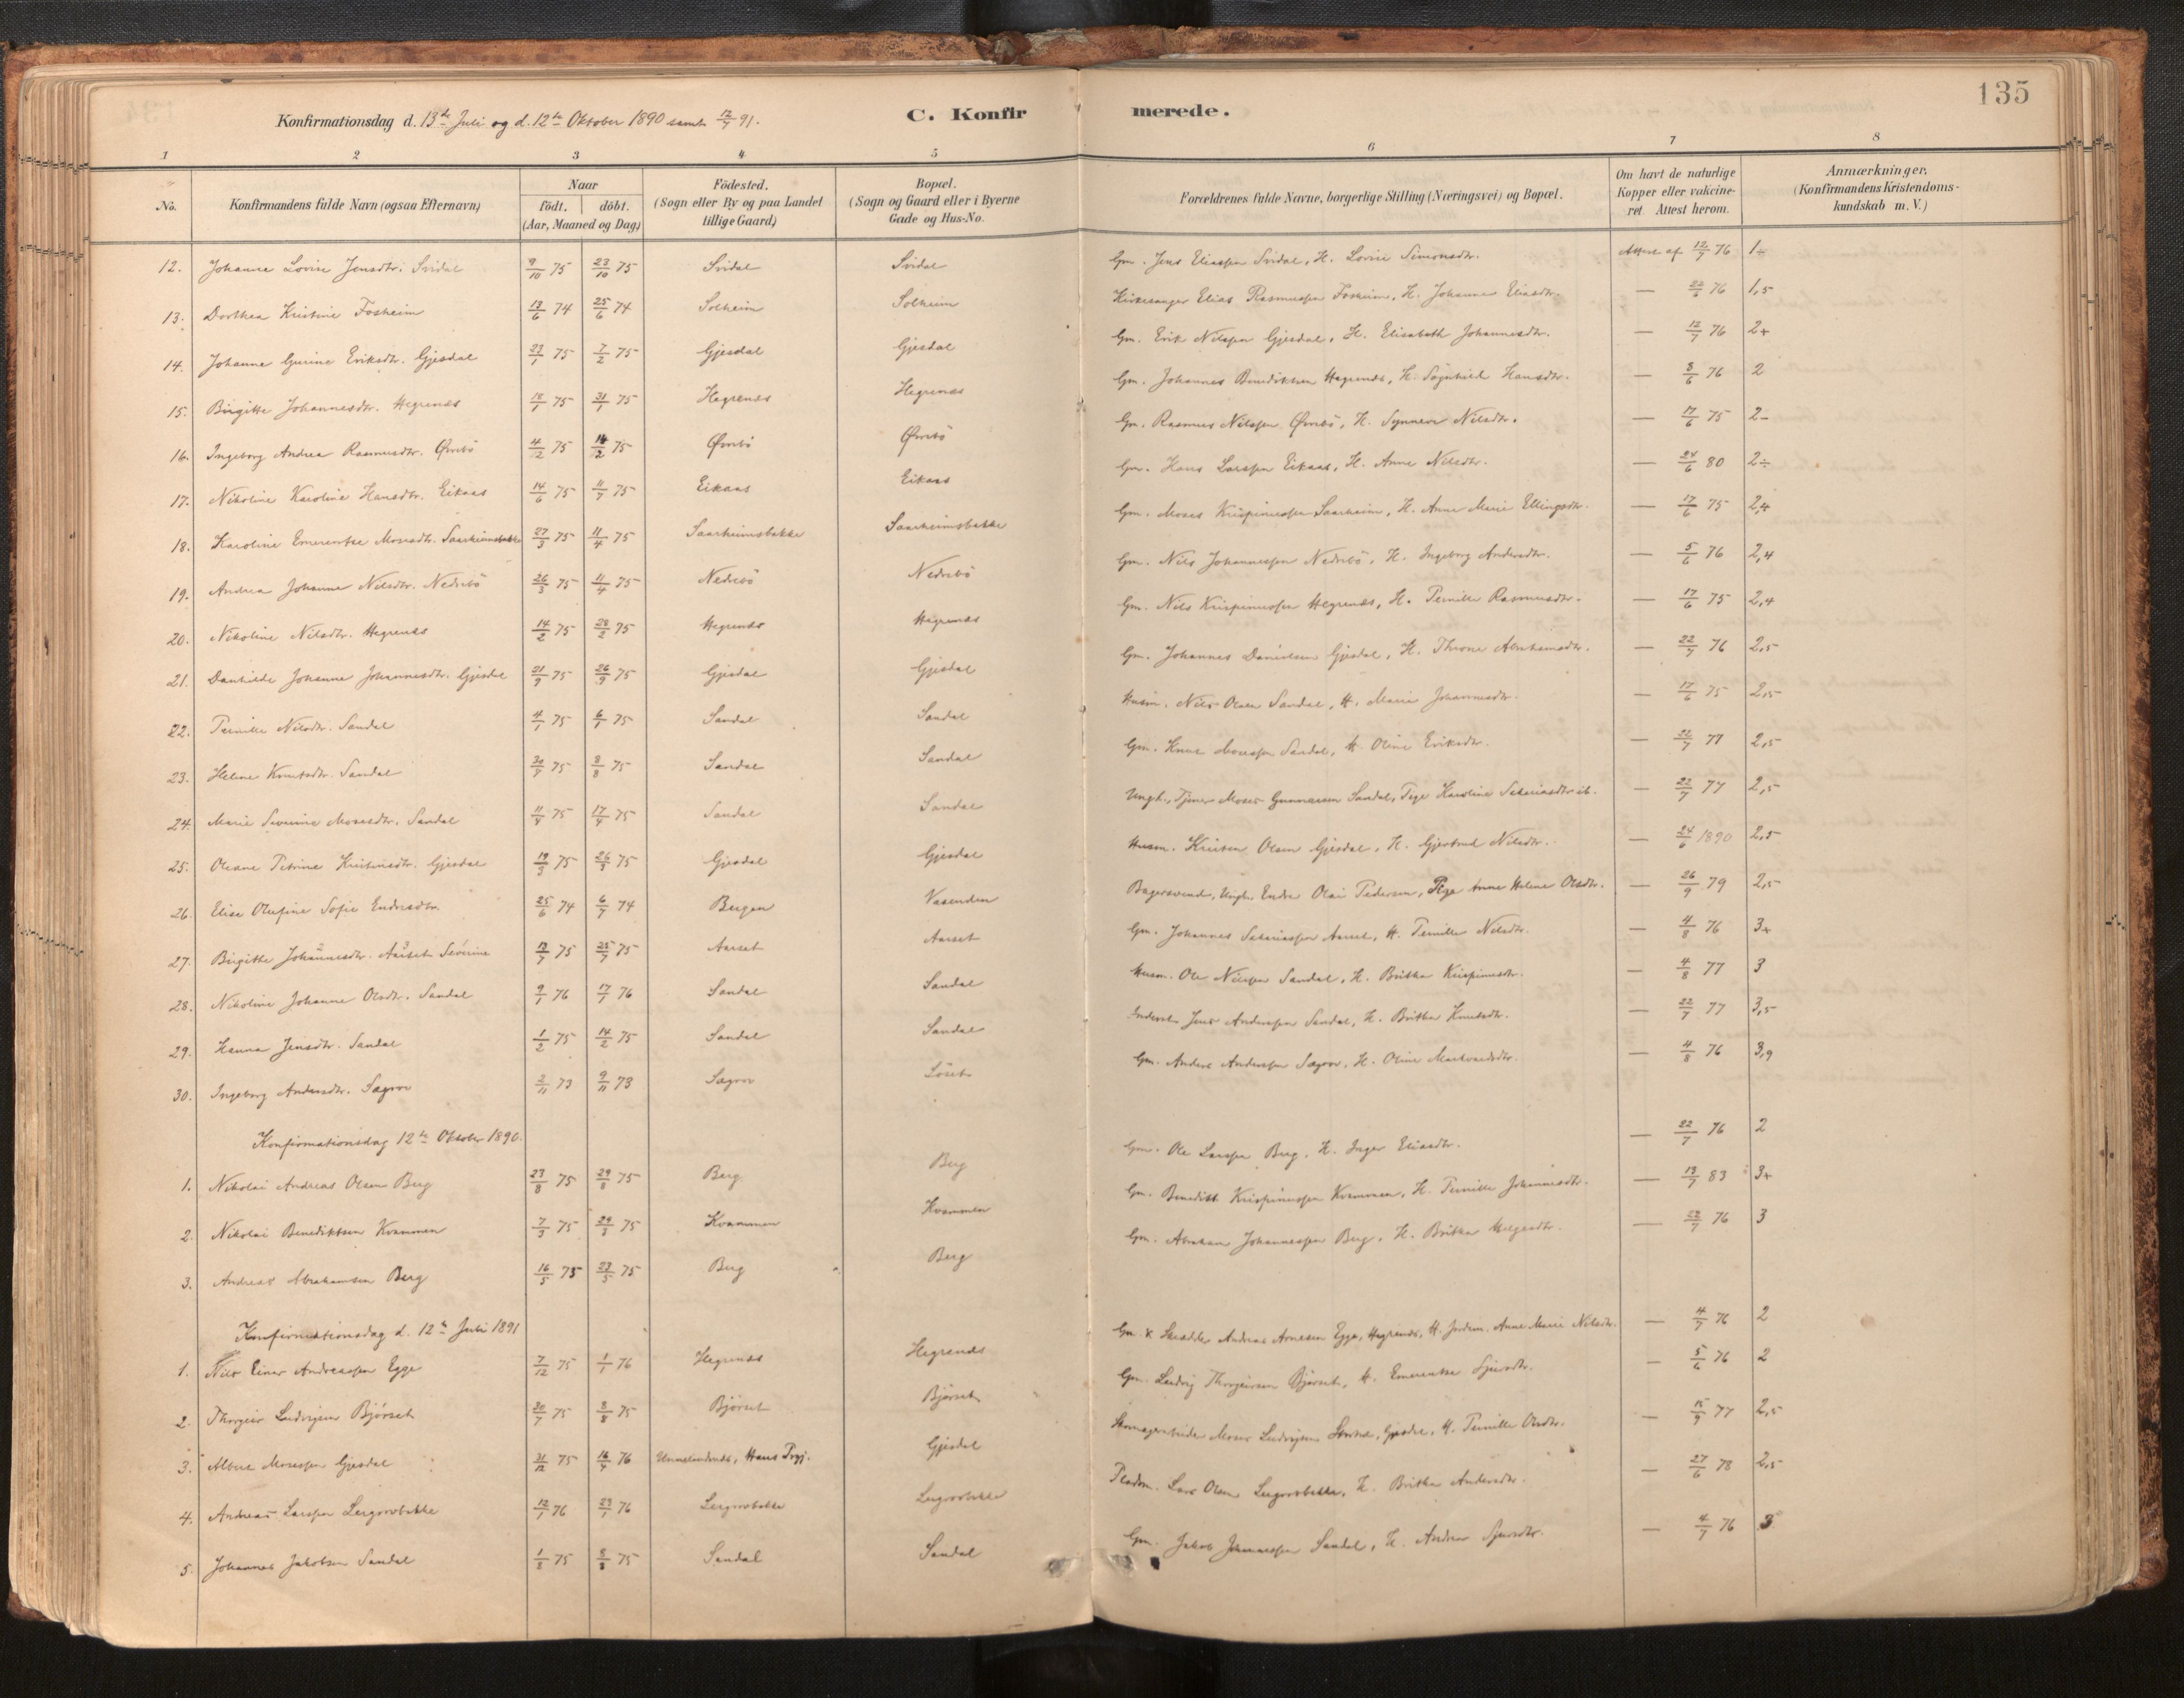 135
Konfirmationsdag d. 13de Juli og d. 12te Oktober 1890 samt 12/7 91.
C. Konfirmerede.
1 2 3 4 5 6 7 8
No. Konfirmandens fulde Navn (ogsaa Efternavn) Naar födt. döbt. (Aar, Maaned og Dag) Födested. (Sogn eller By og paa Landet tillige Gaard) Bopæl. (Sogn og Gaard eller i Byerne Gade og Hus-No. Forældrenes fulde Navne, borgerlige Stilling (Næringsvei) og Bopæl. Om havt de naturlige Kopper eller vakcineret. Attest herom. Anmærkninger. (Konfirmandens Kristendomskundskab m. V.)
12. Johanne Lovise Jensdtr. Svidal 9/10 75 23/10 75 Svidal Svidal Gm. Jens Eliassen Svidal, H. Lovise Simonsdtr. Attest af 12/7 76 1÷
13. Dorthea Kristine Fosheim 13/6 74 25/6 74 Solheim Solheim Kirkesanger Elias Rasmussen Fosheim, H. Johanne Eliasdtr. — 22/6 76 1,5
14. Johanne Gurine Eriksdtr. Gjesdal 23/1 75 7/2 75 Gjesdal Gjesdal Gm. Erik Nilssen Gjesdal, H. Elisabeth Johannesdtr. — 12/7 76 2+
15. Birgitte Johannesdtr. Hegrenæs 18/1 75 31/1 75 Hegrenæs Hegrenæs Gm. Johannes Benediktsen Hegrenæs, H. Søgnhild Hansdtr. — 8/6 76 2
16. Ingeborg Andrea Rasmusdtr. Øvrebö 4/12 75 75 Øvrebö Øvrebö Gm. Rasmus Nilssen Øvrebö, H. Synneva Nilsdtr. — 17/6 75 2-
17. Nikoline Karoline Hansdtr. Eikaas 14/6 75 11/7 75 Eikaas Eikaas Gm. Hans Larssen Eikaas, H. Anne Nilsdtr. — 24/6 80 2÷
18. Karoline Emerentse Mosesdtr. Saarheimsbakke 27/3 75 11/4 75 Saarheimsbakke Saarheimsbakke Gm. Moses Krispinussen Saarheim, H. Anne Marie Ellingsdtr. — 17/6 75 2,4
19. Andrea Johanne Nilsdtr. Nedrebö 26/3 75 11/4 75 Nedrebö Nedrebö Gm. Nils Johannessen Nedrebö, H. Ingeborg Andersdtr. — 5/6 76 2,4
20. Nikoline Nilsdtr. Hegrenæs 14/2 75 28/2 75 Hegrenæs Hegrenæs Gm. Nils Krispinussen Hegrenæs, H. Pernille Rasmusdtr. — 17/6 75 2,4
21. Danhilde Johanne Johannesdtr. Gjesdal 21/9 75 26/9 75 Gjesdal Gjesdal Gm. Johannes Danielsen Gjesdal, H. Throne Abrahamsdtr. — 22/7 76 2,5
22. Pernille Nilsdtr. Sandal 4/1 75 6/1 75 Sandal Sandal Husm. Nils Olsen Sandal, H. Marie Johannesdtr. — 17/6 75 2,5
23. Heline Knutsdtr. Sandal 30/7 75 8/8 75 Sandal Sandal Gm. Knut Mosessen Sandal, H. Oline Eriksdtr. — 22/7 77 2,5
24. Marie Severine Mosesdtr. Sandal 11/4 75 17/4 75 Sandal Sandal Ungk., Tjener Moses Gunnarsen Sandal, Pige Karoline Sakariasdtr. ib. — 22/7 77 2,5
25. Oleane Petrine Kristensdtr. Gjesdal 19/3 75 26/3 75 Gjesdal Gjesdal Husm. Kristen Olsen Gjesdal, H. Gjertrud Nilsdtr. — 24/6 1890 2,5
26. Elise Olufine Sofie Endresdtr. 25/6 74 6/7 74 Bergen Vasenden Bagersvend, Ungk. Endre Olai Pedersen, Pige Anne Helene Olsdtr. — 26/9 79 2,5
27. Birgitte Johannesdtr. Aarset Severine 13/7 75 25/7 75 Aarset Aarset Gm. Johannes Sakariassen Aarset, H. Pernille Nilsdtr. — 4/8 76 3+
28. Nikoline Johanne Olsdtr. Sandal 9/1 76 17/1 76 Sandal Sandal Husm. Ole Nilssen Sandal, H. Britha Krispinusdtr. — 4/8 77 3
29. Hanna Jensdtr. Sandal 1/2 75 14/2 75 Sandal Sandal Inderst Jens Anderssen Sandal, H. Britha Knutsdtr. — 22/7 77 3,5
30. Ingeborg Andersdtr. Sægrov 2/11 73 9/11 73 Sægrov Löset Gm. Anders Anderssen Sægrov, H. Oline Markvardsdtr. — 4/8 76 3,9
Konfirmationsdag 12te Oktober 1890.
1. Nikolai Andreas Olsen Berg 23/8 75 29/8 75 Berg Berg Gm. Ole Larssen Berg, H. Inger Eliasdtr. — 22/7 76 2
2. Nikolai Benediktsen Kvammen 7/3 75 29/3 75 Kvammen Kvammen Gm. Benedikt Krispinussen Kvammen, H. Pernille Johannesdtr. — 13/7 83 3+
3. Andreas Abrahamsen Berg 16/5 75 23/5 75 Berg Berg Gm. Abraham Johannessen Berg, H. Britha Helgesdtr. — 22/7 76 3
Konfirmationsdag d. 12te Juli 1891
1. Nils Einar Andreassen Egge 7/12 75 1/1 76 Hegrenæs Hegrenæs Gm. & Skrædder Andreas Arnesen Egge, Hegrenæs, H. Jordem. Anne Marie Nilsdtr. — 4/7 76 2
2. Thorgeir Ludvigsen Bjørset 30/7 75 8/8 75 Bjørset Bjørset Gm. Ludvig Thorgeirsen Bjørset, H. Emerentse Sjursdtr. — 5/6 76 2
3. Albert Mosessen Gjesdal 31/12 75 16/4 76 Unnelandsnæs, Haus Prgj. Gjesdal Moses Ludvigsen Gjesdal, H. Pernille Olsdtr. — 15/9 77 2,5
4. Andreas Larssen Lergrovbakke 12/1 76 23/1 76 Lergrovbakke Lergrovbakke Pladsm. Lars Olsen Lergrovbakke, H. Britha Andersdtr. — 27/6 78 2,5
5. Johannes Jakobsen Sandal 1/8 75 8/8 75 Sandal Sandal Gm. Jakob Johannessen Sandal, H. Andrea Sjursdtr. — 4/7 76 3